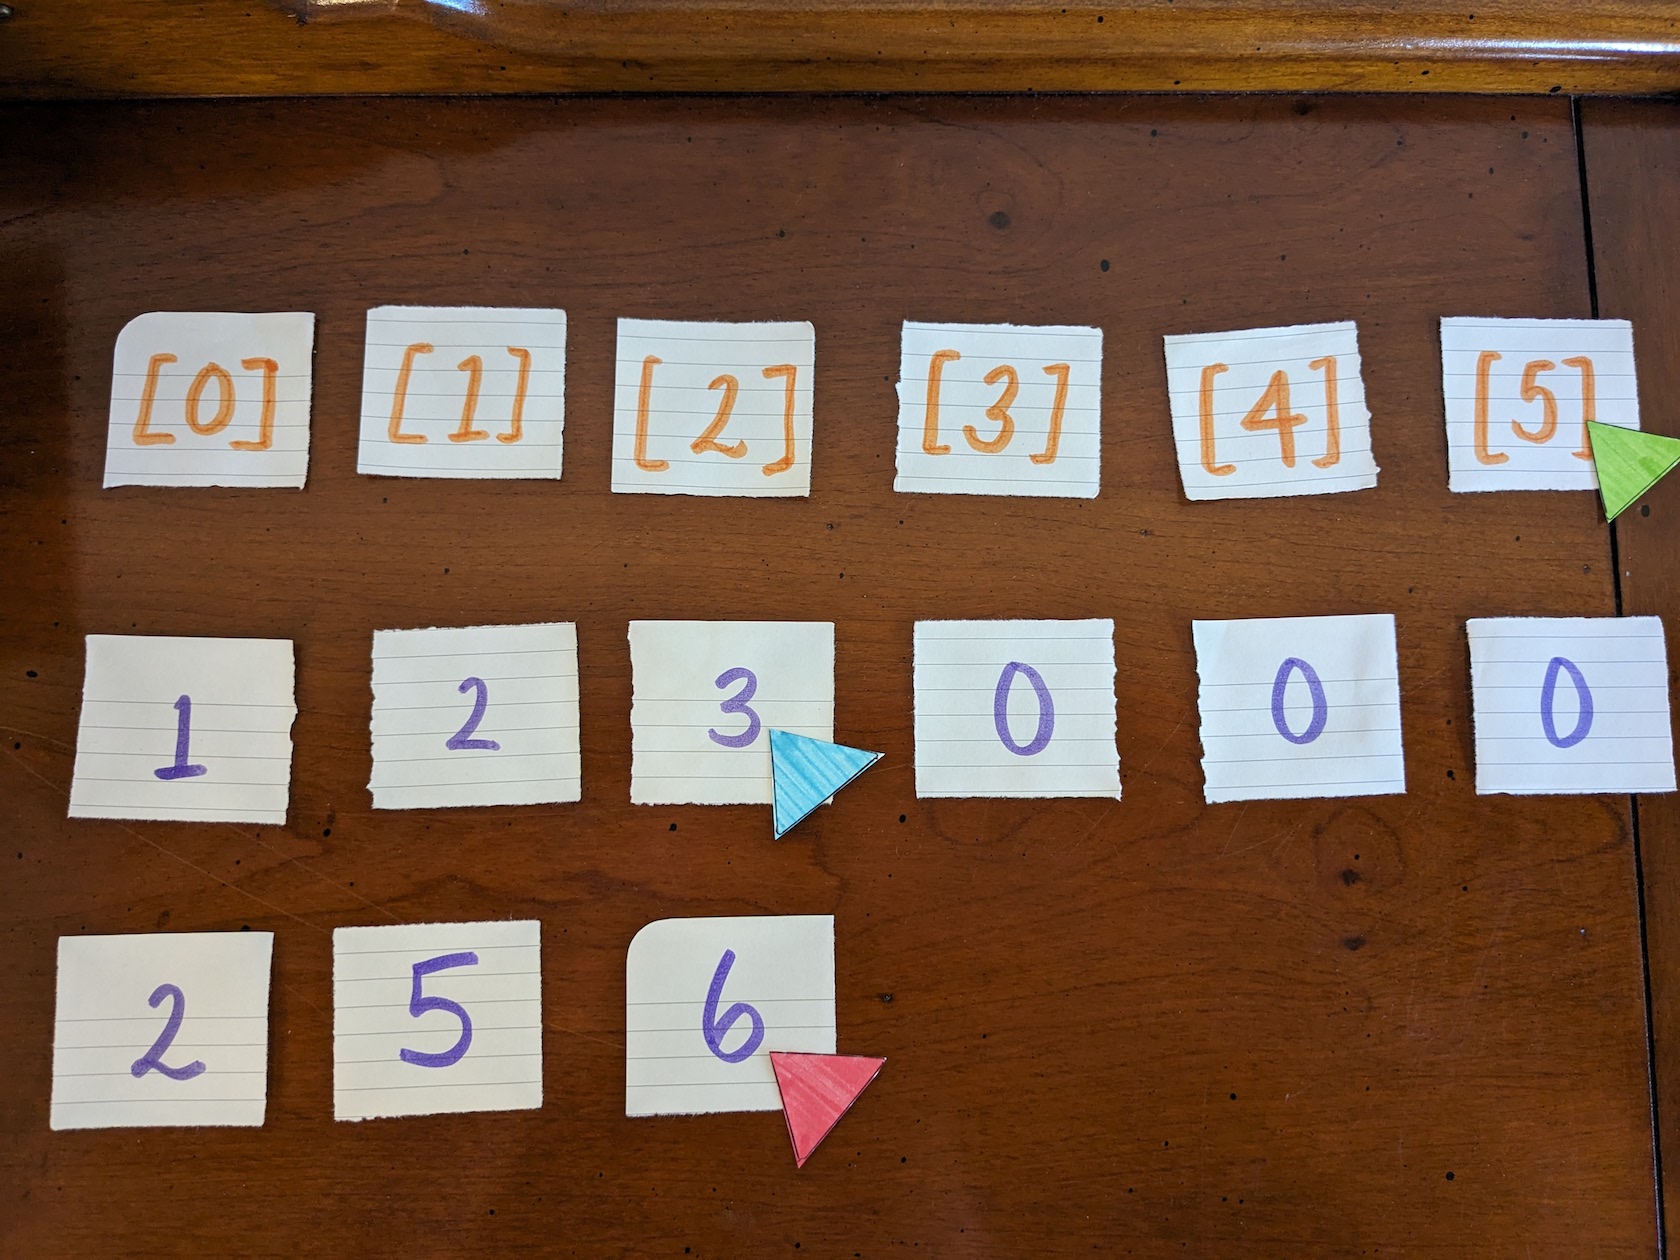 [0] [1] [2] [3] [4] [5]
1 2 3 0 0 0
2 5 6